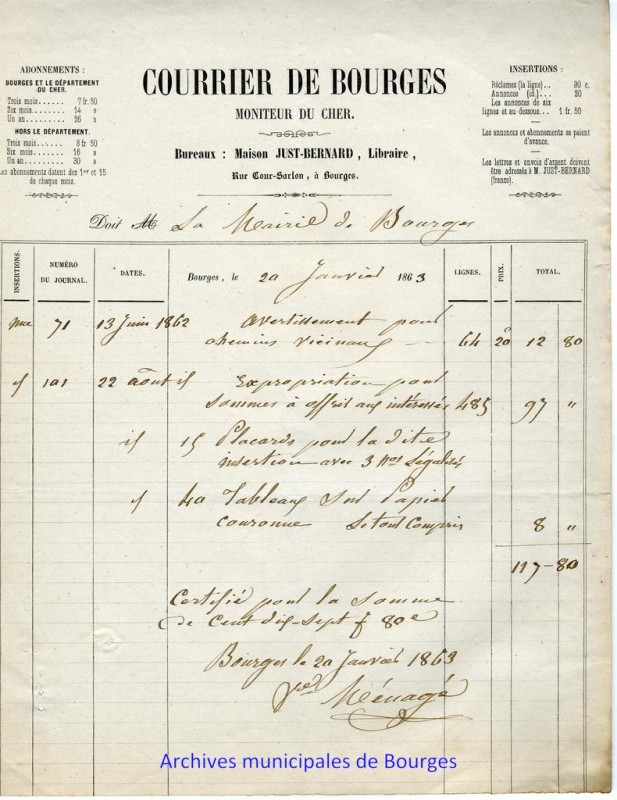 ABONNEMENTS :
BOURGES ET LE DÉPARTEMENT
DU CHER.
Trois mois...... 7 fr. 50
Six mois..... 14 »
Un an........ 26 »
HORS LE DÉPARTEMENT.
Trois mois..... 8 fr. 50
Six mois..... 16 »
Un an........ 30 »
Les abonnements datent des 1er et 15
de chaque mois.
COURRIER DE BOURGES
MONITEUR DU CHER.
Bureaux : Maison JUST-BERNARD, Libraire,
Rue Cour-Sarlon, à Bourges.
INSERTIONS :
Réclames (la ligne).. 30 c.
Annonces (id.)... 20
Les annonces de six
lignes et au dessous... 1 fr. 50
Les annonces et abonnements se paient
d'avance.
Les lettres et envois d'argent doivent
être adressés à M. JUST-BERNARD
(franco).
Doit M La Mairie de Bourges
INSERTIONS. NUMÉRO DU JOURNAL. DATES. Bourges, le 20 Janvier 1863 LIGNES. PRIX. TOTAL.
une 71 13 Juin 1862 Avertissement pour
chemins vicinaux — 64 20c 12 80
if 101 22 août if Expropriation pour
sommes à offrir aux intéressés 485 97 "
if 15 Placards pour la dite
insertion avec 3 nos Légalisés
if 40 Tableaux sur Papier
couronne le tout compris 8 "
117-80
Certifié pour la somme
de Cent dix-sept f 80c
Bourges le 20 Janvier 1863
Ménagé
Archives municipales de Bourges